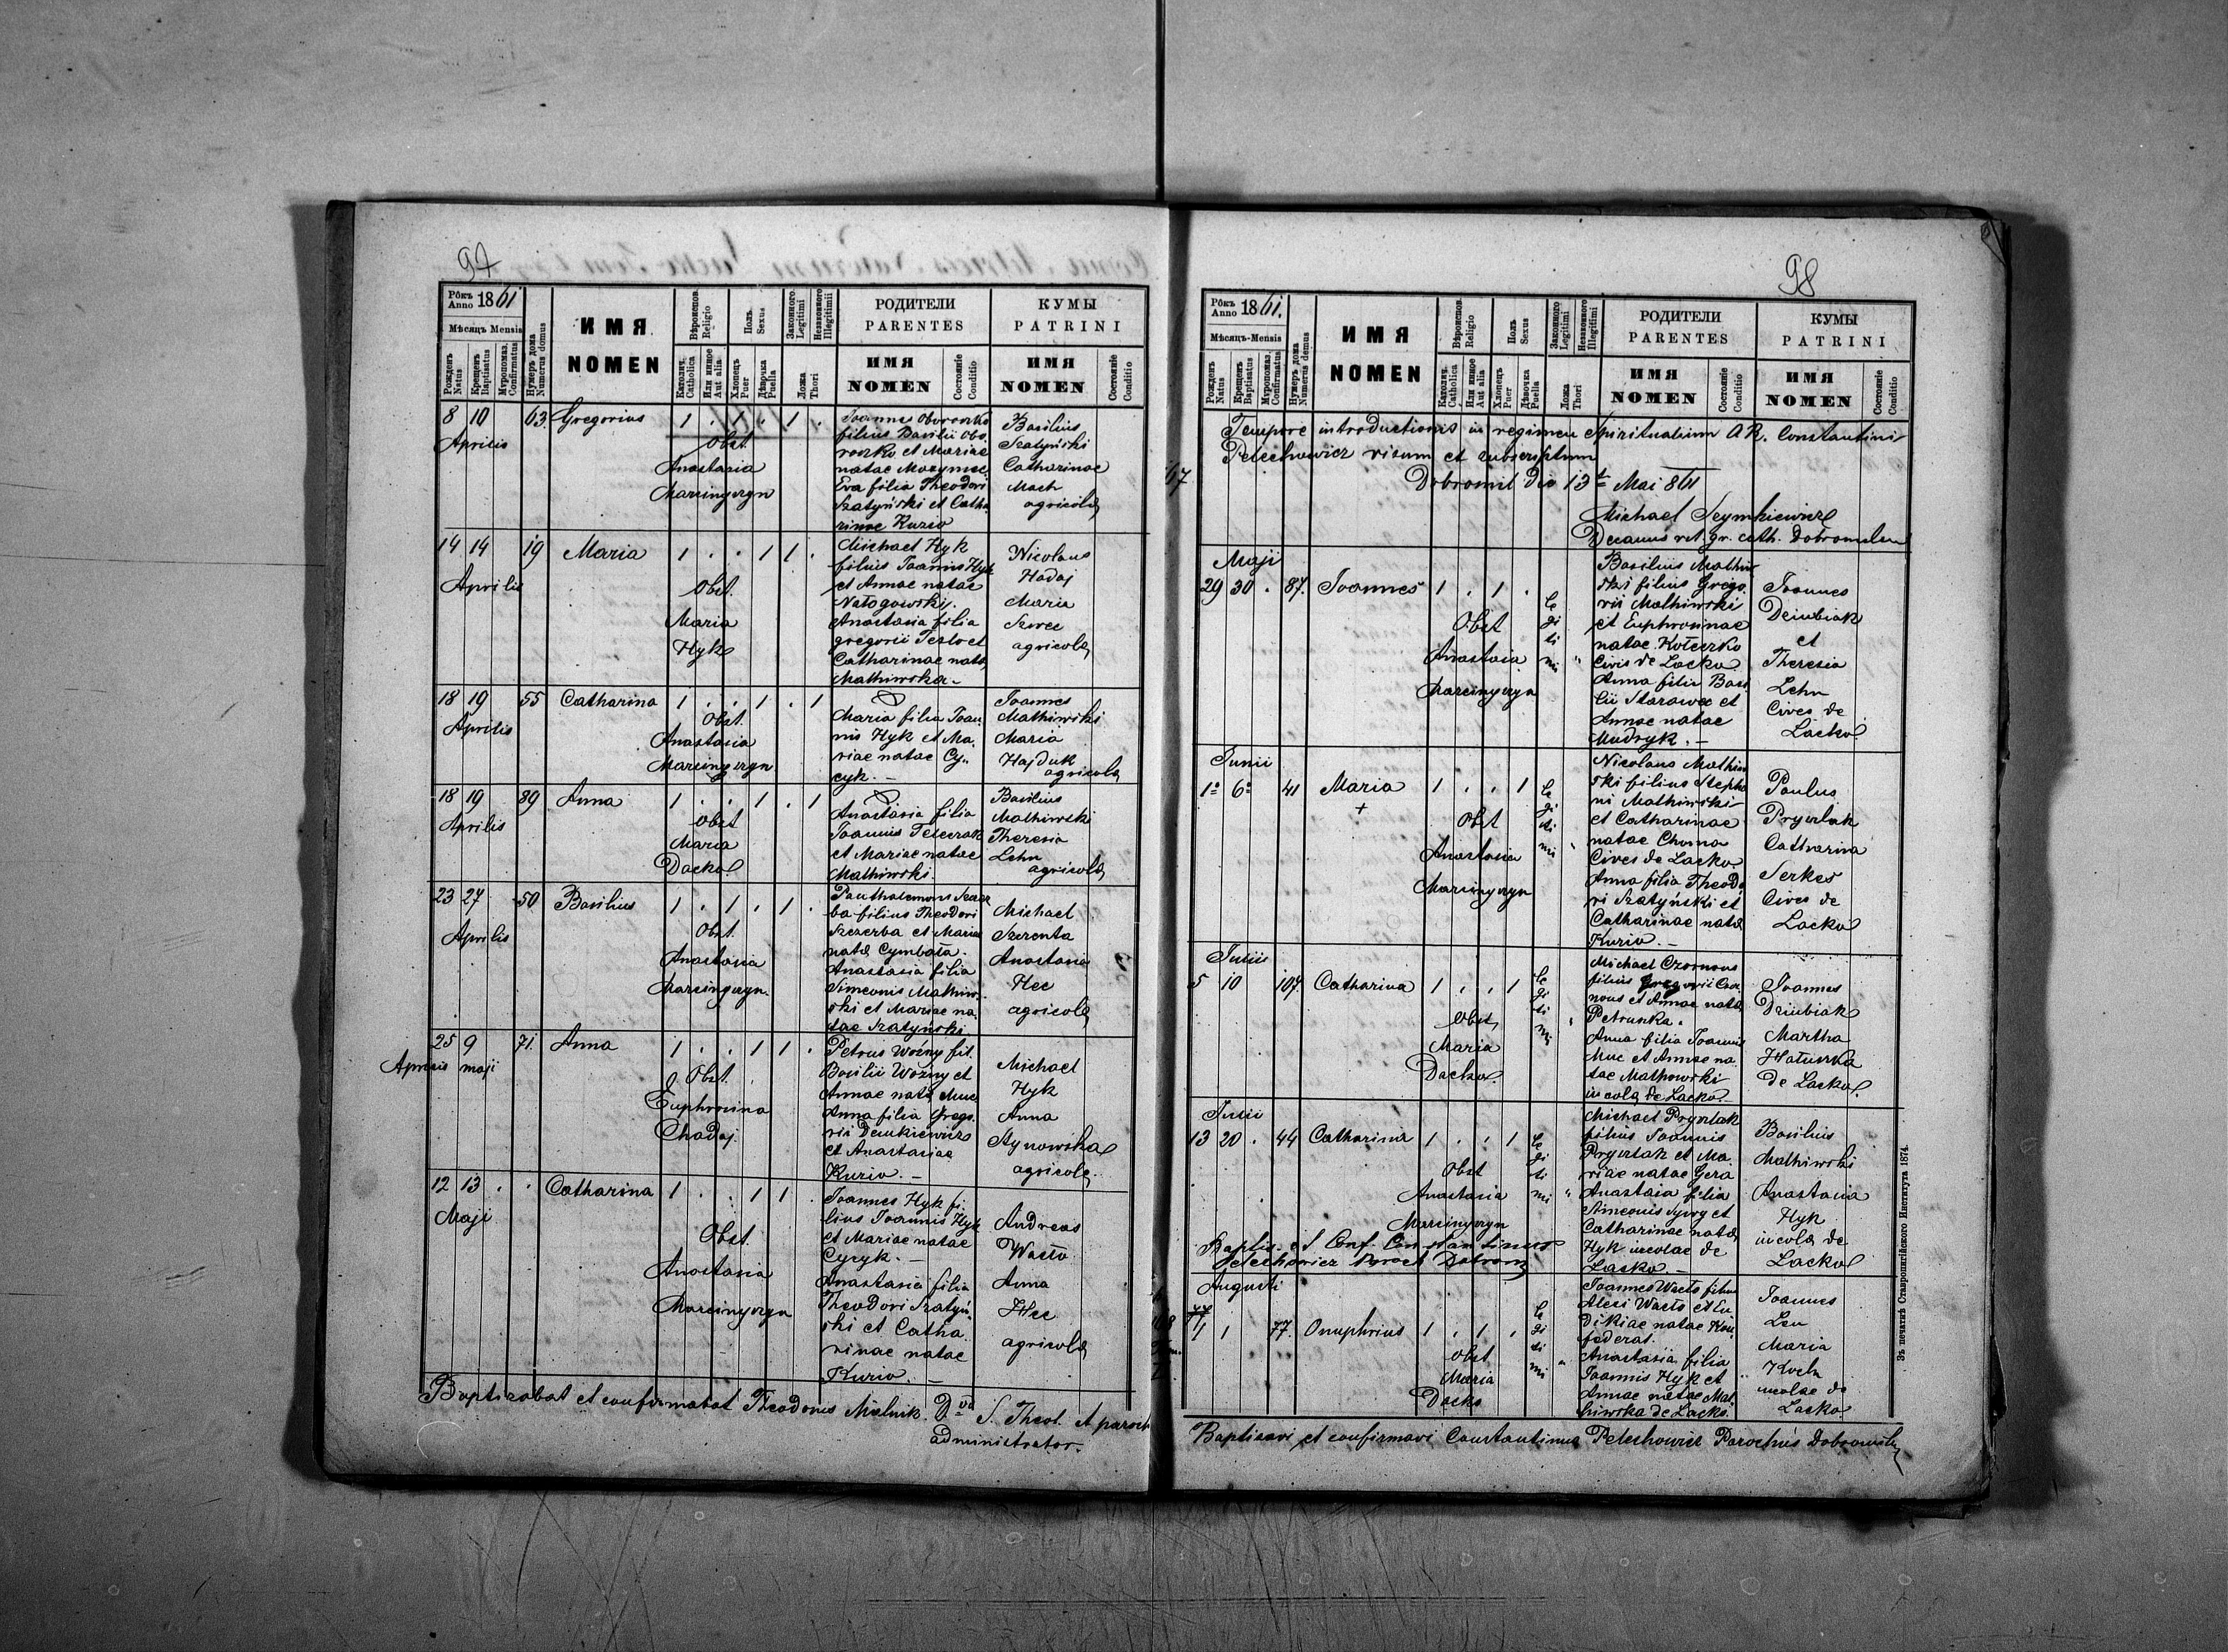 97
Рôкъ Anno 1861
Мѣсяцъ Mensis
Рожденъ Natus
Крещенъ Baptisatus
Мѵропомаз. Confirmatus
Нумеръ дома Numerus domus
ИМЯ
NOMEN
Вѣроисповѣд. Religio
Католич. Catholica
Или иное Aut alia
Полъ Sexus
Хлопецъ Puer
Дѣвочка Puella
Законного Legitimi
Незаконного Illegitimii
Ложа Thori
РОДИТЕЛИ
PARENTES
ИМЯ
NOMEN
Состоянie Conditio
КУМЫ
PATRINI
ИМЯ
NOMEN
Состоянie Conditio
8 10 63. Gregorius 1 . 1 . 1 .
Aprilis
Obst
Anastasia
Marcinyszyn
Joannes Oboroszko
filius Basilii Obo
roszko et Mariae
natae
Eva filia Theodori
Szatyński et Catha
rinae Kurio
Basilius
Szatyński
Catharinae
Mach
agricola
14 14 19 Maria 1 . . 1 1 .
Aprilis
Obst.
Maria
Hyk
Michael Hyk
filius Joannis Hyk
et Annae natae
Natogowski.
Anastasia filia
gregorii Teslo et
Catharinae nata
Mathiwska.-
Nicolaus
Hadaj
Maria
Szwec
agricola
18 19 55 Catharina 1 . . 1 . 1
Aprilis
Obst.
Anastasia
Marcinyszyn
Maria filia Joan
nis Hyk et Ma.
riae natae Cy.
cyk. -
Joannes
Mathiwski
Maria
Hajduk
agricola
18 19 89 Anna 1 . . 1 . 1
Aprilis
Obst
Maria
Dacko
Anastasia filia
Joannis
et Mariae natae
Mathiwski.
Basilius
Mathiwski
Theresia
Lehn
agricola
23 27 50 Basilius 1 . 1 . 1 .
Aprilis
Obst.
Anastasia
Marcinyszyn.
Panthalemons Szczer
ba filius Theodori
Szczerba et Mariae
nata Cymbała.
Anastasia filia
Simeonis Mathiw.
ski et Mariae na.
tae Szatyński
Michael
Szerenta
Anastasia
Hec
agricola
25 9 71. Anna 1 . . 1 1 .
Aprilis maji
Obst.
Euphrosina
Chadaj.
Petrus Woźny fil.
Basilii Woźny et
Annae nata Muc
Anna filia Grego.
rii Demkiewicz
et Anastasiae
Kurio. -
Michael
Hyk
Anna
Stynowska
agricola.
12 13 . . Catharina 1 . . 1 1 .
Maji
Obst.
Anastasia
Marcinyszyn
Joannes Hyk fi.
lius Joannis Hyk
et Mariae natae
Cycyk. -
Anastasia filia
Theodori Szatyń
ski et Catha
rinae natae
Kurio. -
Andreas
Wasło
Anna
Hec
agricola
Baptizabat et confirmabat Theodorus Mielnik. S. Theol. et paroch
administrator.
98
Рôкъ Anno 1861.
Мѣсяцъ-Mensis
Рожденъ Natus
Крещенъ Baptisatus
Мѵропомаз. Confirmatus
Нумеръ дома Numerus domus
ИМЯ
NOMEN
Вѣроисповѣд. Religio
Католич. Catholica
Или иное Aut alia
Полъ Sexus
Хлопецъ Puer
Дѣвочка Puella
Законного Legitimi
Незаконного Illegitimi
Ложа Thori
РОДИТЕЛИ
PARENTES
ИМЯ
NOMEN
Состоянie Conditio
КУМЫ
PATRINI
ИМЯ
NOMEN
Состоянie Conditio
Tempore introductionis in regimen Spiritualium A R. Constantini
Pelechowicz visum et subscriptum
Dobromil Die 13 Mai 861
Michael Szymkiewicz
Decanus rit. gr. cath. Dobromilen
Maji
29 30 . 87. Joannes 1 . 1 .
Obst
Anastasia
Marcinyszyn
legitimi
Basilius Mathiw
ski filius Grego
rii Mathiwski
et Euphrosinae
natae Koteczko
Civis de Lacko
Anna filia Basi
lii Starawec et
Annae natae
Mudryk. -
Joannes
Dziubiak
et
Theresia
Lehn
Cives de
Lacko
Junii
1 6 41 Maria 1 . . 1
+
Obst
Anastasia
Marcinyszyn
legitimi
Nicolaus Mathiw
ski filius Stepha
ni Mathiwski
et Catharinae
natae Choma
Cives de Lacko
Anna filia Theodo
ri Szatyński et
Catharinae nata
Kurio. -
Paulus
Prystak
Catharina
Serkes
Cives de
Lacko
Julii
5 10 107. Catharina 1 . . 1
Obst
Maria
Dacko.
legitimi
Michael Czornous
filius Gregorii Czor
nous et Annae nata
Petruska.
Anna filia Joannis
Muc et Annae na
tae Mathowski
incola de Lacko
Joannes
Dziubiak
Martha
Hałuszka
de Lacko.
Julii
13 20 . 44 Catharina 1 . . 1
Obst
Anastasia
Marcinyszyn
legitimi
Michael Prystak
filius Joannis
Prystak et Ma.
riae natae Gera
Anastasia filia
Simeonis et
Catharinae nata
Hyk incolae de
Lacko -
Basilius
Mathiwski
Anastasia
Hyk
incola de
Lacko
Baptis. et Conf. Constantinus
Pelechowicz Paroch Dobrom
Augusti
1 1 77. Onuphrius 1 . 1 .
Obst
Maria
Dacko
legitimi
Joannes Wasto filius
Alexi Wasto et Eu
dikiae natae Kon
federat.
Anastasia filia
Joannis Hyk et
Annae natae Mat
hiwska de Lacko.
Joannes
Len
Maria
Koch
incolae de
Lacko.
Baptisavi et confirmavi Constantinus Pelechowicz Parochus Dobromil
Зъ печатнѣ Ставропигійского Института 1874.